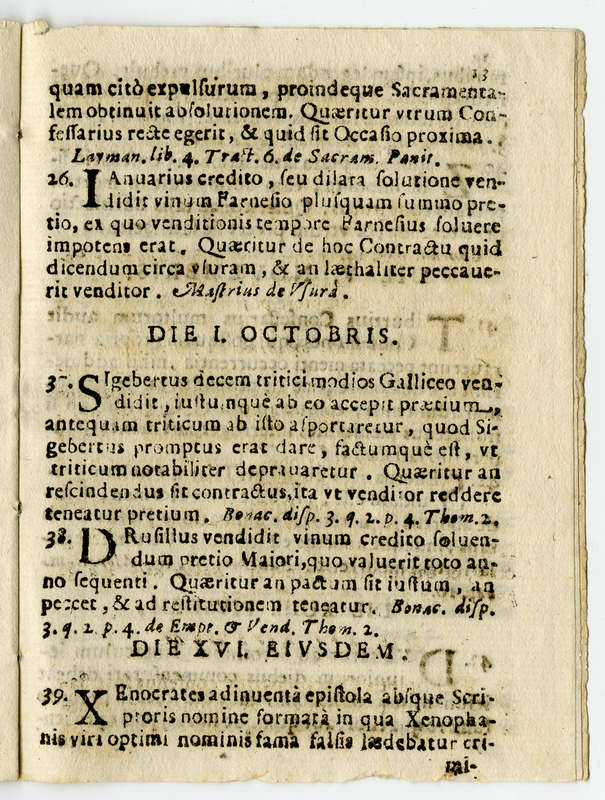 13
quam citò expulsurum, proindeque Sacramenta-
lem obtinuit absolutionem. Quæritur vtrum Con-
fessarius recte egerit, & quid sit Occasio proxima.
Layman. lib. 4. Tract. 6. de Sacram. Pænit.
26. IAnuarius credito, seu dilara solutione ven-
didit vinum Farnesio plusquam summo pre-
tio, ex quo venditionis tempore Farnesius soluere
impotens erat. Quæritur de hoc Contractu quid
dicendum circa vsuram, & an læthaliter peccaue-
rit venditor. Mastrius de Vsurâ.
DIE I. OCTOBRIS.
37. SIgebertus decem tritici modios Galliceo ven-
didit, iustumquè ab eo accepit prætium,
antequam triticum ab isto asportaretur, quod Si-
gebertus promptus erat dare, factumquè est, vt
triticum notabiliter deprauaretur. Quæritur an
rescindendus sit contractus, ita vt venditor reddere
teneatur pretium. Bonac. disp. 3. q. 2. p. 4. Thom. 2.
38. DRusillus vendidit vinum credito soluen-
dum pretio Maiori, quo valuerit toto an-
no sequenti. Quæritur an pactum sit iustum, an
peccet, & ad restitutionem teneatur. Bonac. disp.
3. q. 2 p. 4. de Empt. & Vend. Thom. 2.
DIE XVI. EIVSDEM.
39. XEnocrates adinuentâ epistola absque Scri-
ptoris nomine formatâ in qua Xenopha-
nis viri optimi nominis fama falsis lædebatur cri-
mi-